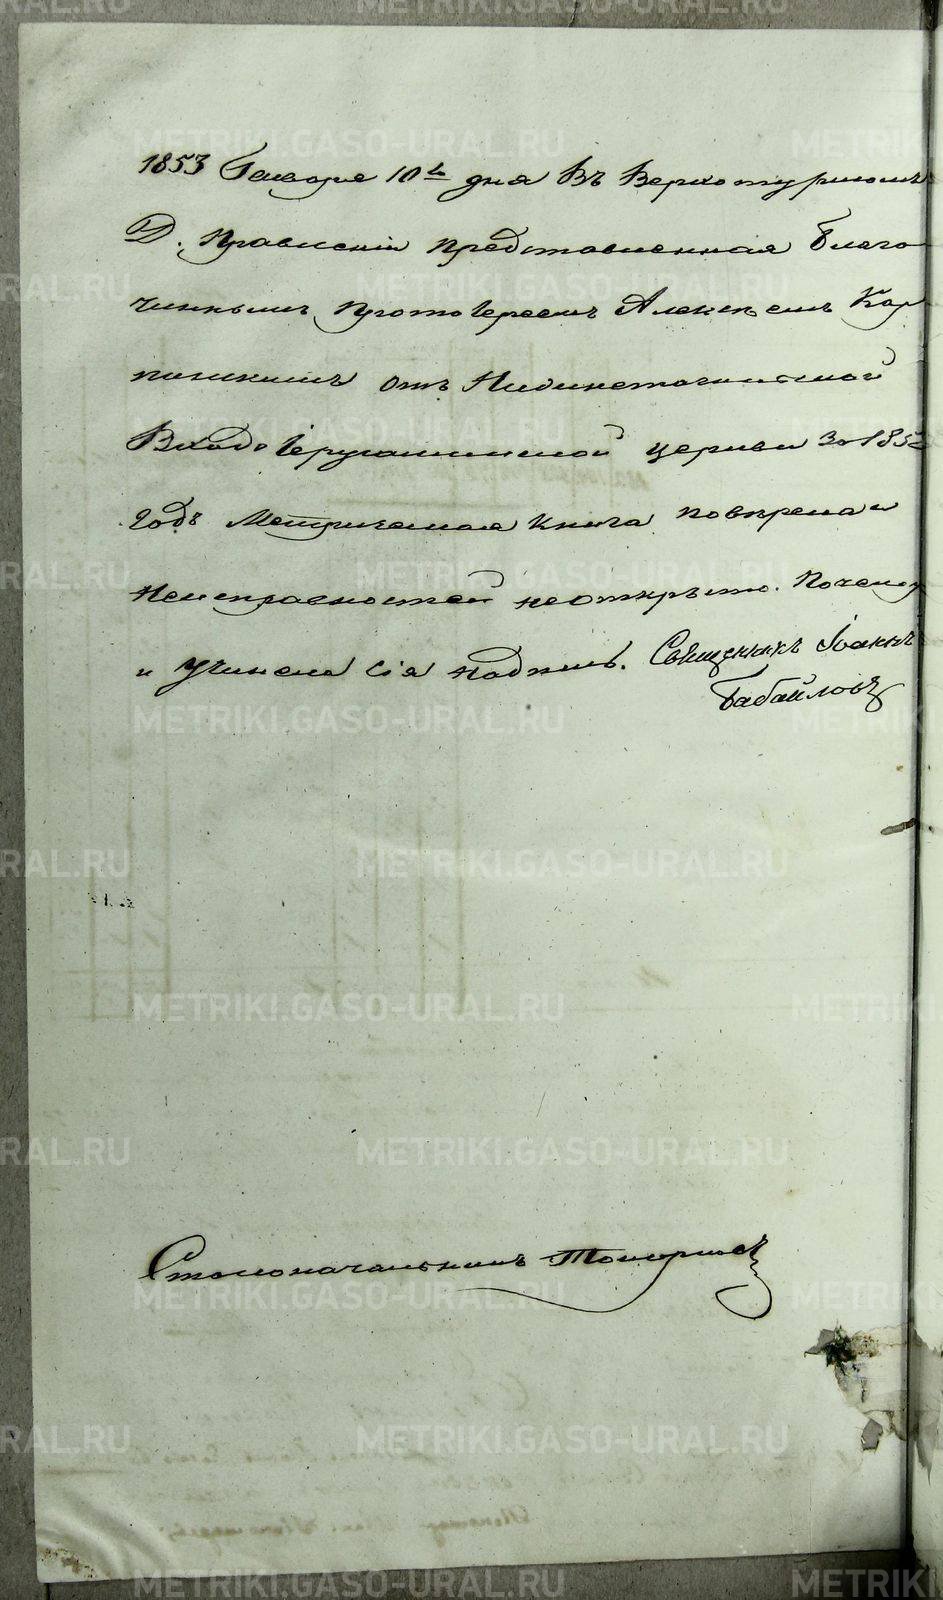 1853 Генваря 10го дня Въ Верхотурскомъ
Д. Правленіи представленная Благо
чиннымъ Протоіереемъ Алексѣемъ Кар
пинскимъ отъ
Входоіерусалимской церкви За 185
годъ Метрическая Книга повѣрена и
Неисправностей не открыто. Почему
и Учинена Сія надпись. Священникъ Іоаннъ
Бабайловъ
Столоначальникъ
METRIKI.GASO-URAL.RU